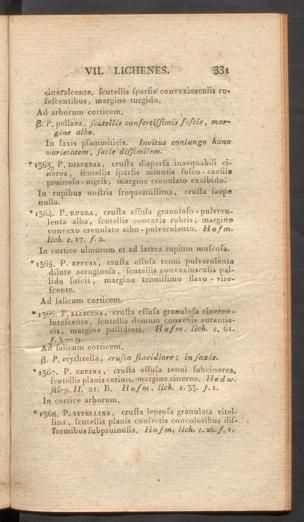 VII. LICHENES. 331
cinerascente, scutellis sparsis convexiusculis ru-
fescentibus, margine turgido.
Ad arborum corticem.
β. P. pellaea, scutellis confertissimis fuscis, mar-
gine albo.
In saxis psammiticis. Invitus coniungo hanc
varietatem, satis distinctam.
*1363. P. DISPERSA, crusta dispersa inaequabili ci-
nerea, scutellis sparsis minutis fusco-caesiis
pruinoso-nigris, margine crenulato exalbido.
In rupibus nostris frequentissima, crusta saepe
nulla.
*1364. P. RUBRA, crusta effusa granuloso-pulveru-
lenta alba, scutellis concavis rubris, margine
convexo crenulato albo-pulverulento. Hofm.
lich. t. 17. f. 2.
In cortice ulmorum et ad latera rupium muscosa.
*1365. P. EFFUSA, crusta effusa tenui pulverulenta
dilute aeruginosa, scutellis convexiusculis pal-
lide fuscis, margine tenuissimo flavo-vire-
scente.
Ad salicum corticem.
*1366. P. SALICINA, crusta effusa granulosa cinereo-
lutescente, scutellis demum convexis aurantia-
cis, margine pallidiori. Hofm. lich. t. 61.
f. 3—9.
Ad salicum corticem.
β. P. erythrella, crusta flavidiore; in saxis.
*1367. P. CERINA, crusta effusa tenui subcinerea,
scutellis planis cerinis, margine cinereo. Hedw.
stirp. II. 21. B. Hofm. lich. t. 33. f. 1.
In cortice arborum.
*1368. P. VITELLINA, crusta leprosa granulata vitel-
lina, scutellis planis confertis concoloribus dif-
formibus subpruinosis. Hofm. lich. t. 26. f. 1.